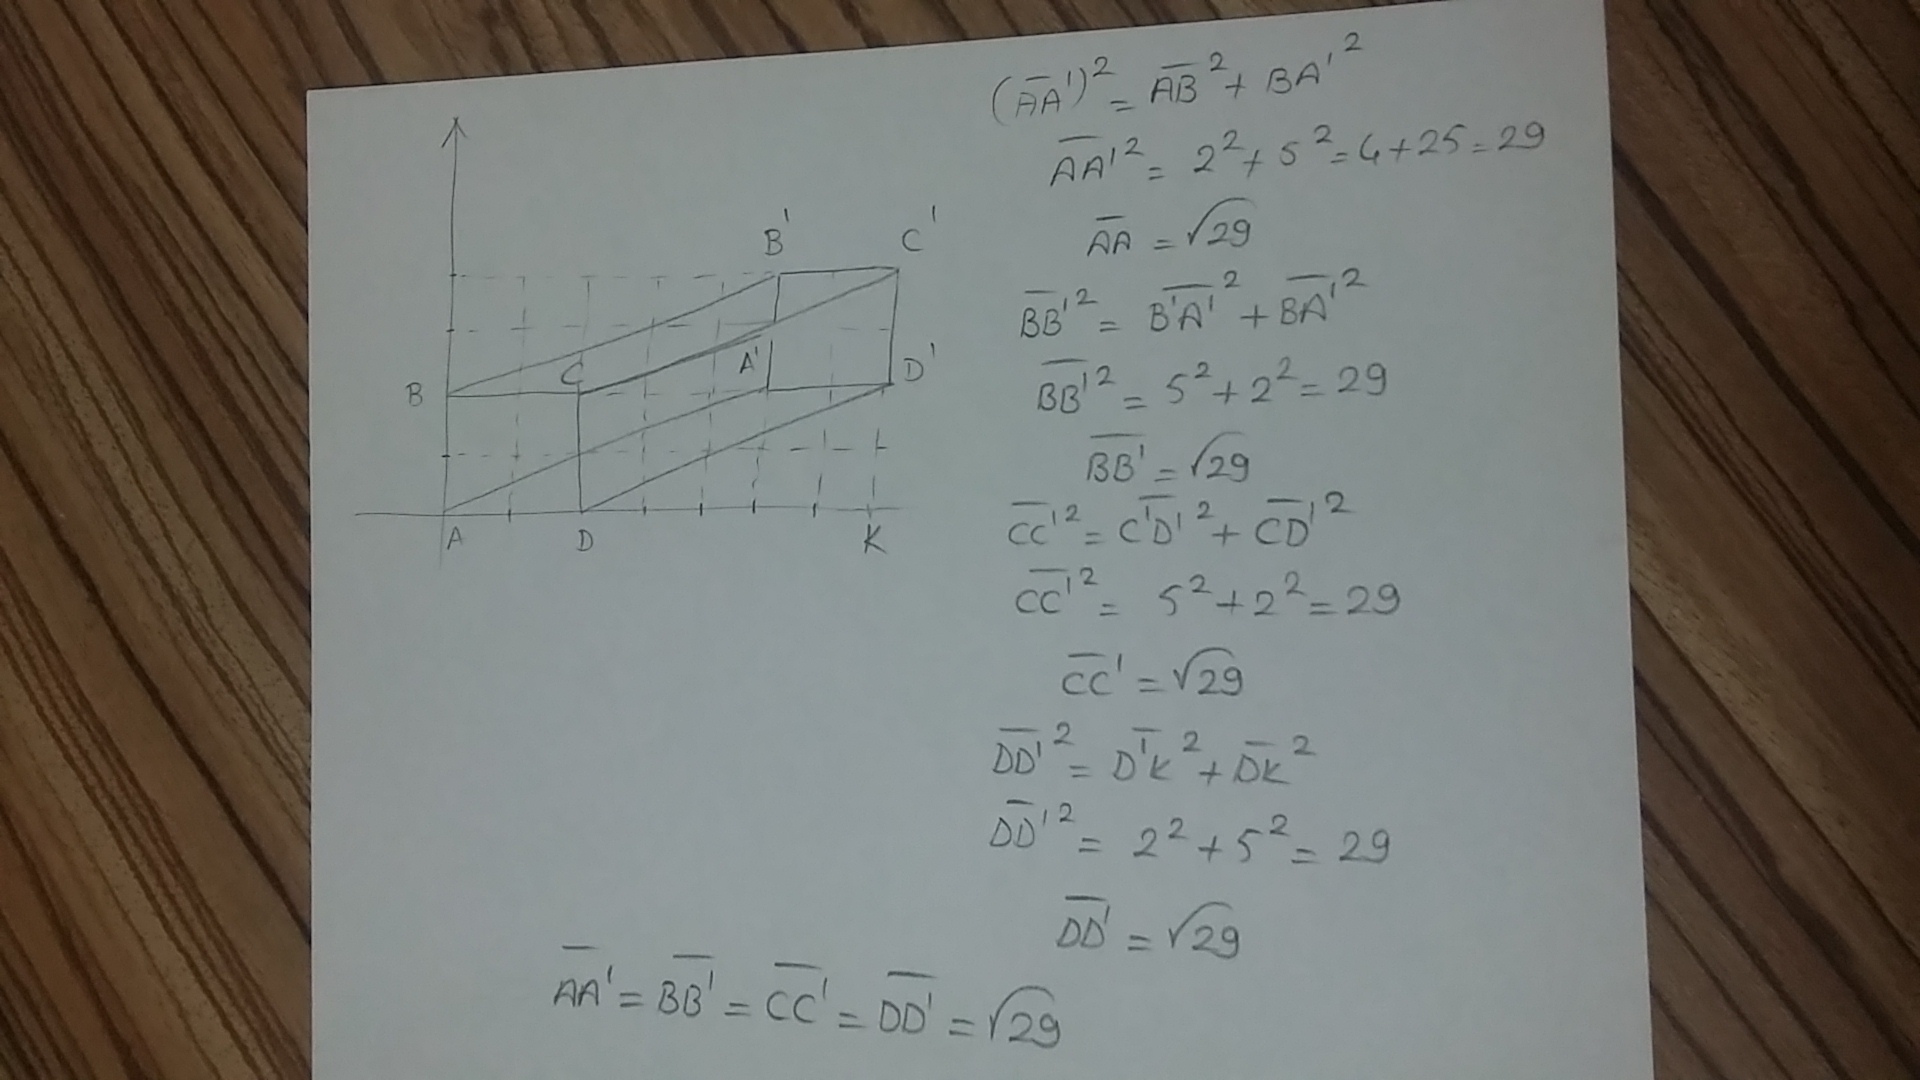 B'
C'
B
C
A'
D'
A
D
K
(A̅A̅')² = A̅B̅² + BA'²
A̅A̅'² = 2² + 5² = 4 + 25 = 29
A̅A̅ = √29
B̅B̅'² = B̅'A̅'² + B̅A̅'²
B̅B̅'² = 5² + 2² = 29
B̅B̅' = √29
C̅C̅'² = C̅'D̅'² + C̅D̅'²
C̅C̅'² = 5² + 2² = 29
C̅C̅' = √29
D̅D̅'² = D̅'K̅² + D̅K̅²
D̅D̅'² = 2² + 5² = 29
D̅D̅' = √29
A̅A̅' = B̅B̅' = C̅C̅' = D̅D̅' = √29